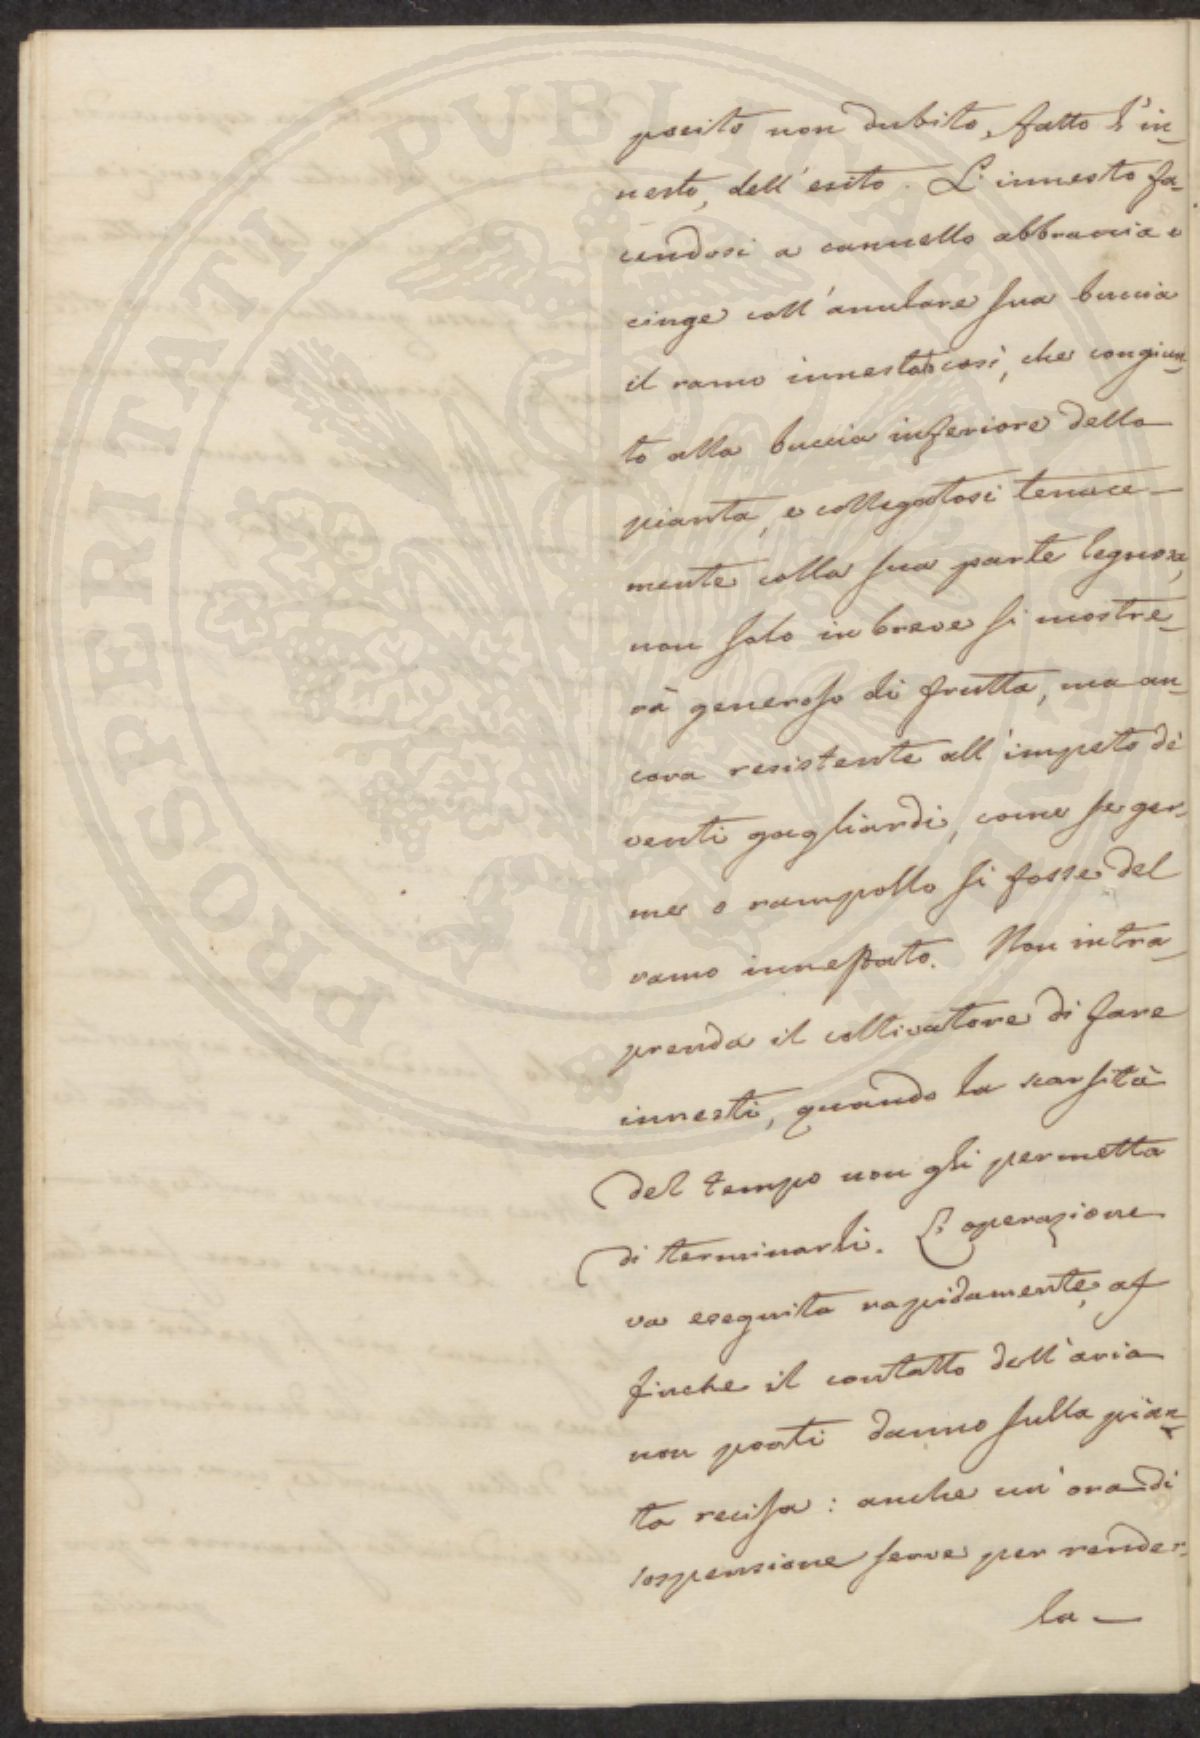 posito non dubito, fatto l'in-
nesto, dell'esito. L'innesto fa-
cendosi a cannello abbraccia e
cinge coll'anulare sua buccia
il ramo innestato così, che congiun-
to alla buccia inferiore della
pianta, e collegatosi tenace-
mente colla sua parte legnosa,
non solo in breve si mostre-
rà generoso di frutta, ma an-
cora resistente all'impeto di
venti gagliardi, come se ger-
me o rampollo si fosse del
ramo innestato. Non intra-
prenda il coltivatore di fare
innesti, quando la scarsità
del tempo non gli permetta
di terminarli. L'operazione
va eseguita rapidamente, af
finche il contatto dell'aria
non porti danno sulla pian-
ta recisa: anche un'ora di
sospensione serve per render-
la —
PROSPERITATI PVBLICAE